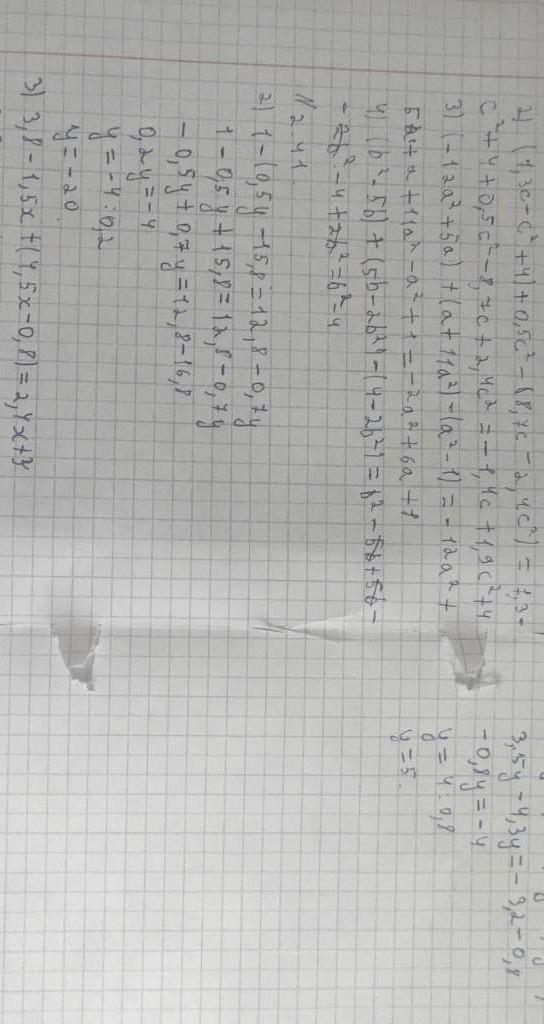 2) (7,3c-c²+4)+0,5c²-(8,7c-2,4c²)=7,3c-
c²+4+0,5c²-8,7c+2,4c²=-1,4c+1,9c²+4
3) (-12a²+5a)+(a+11a²)-(a²-1)=-12a²+
5a+a+11a²-a²+1=-2a²+6a+1
4) (b²-5b)+(5b-2b²)-(4-2b²)=b²-5b+5b-
-2b²-4+2b²=b²-4
// 2.41.
2) 1-(0,5y-15,8)=12,8-0,7y
1-0,5y+15,8=12,8-0,7y
-0,5y+0,7y=12,8-16,8
0,2y=-4
y=-4:0,2
y=-20.
3) 3,8-1,5x+(4,5x-0,8)=2,4x+3
3,5y-4,3y=-3,2-0,8
-0,8y=-4
y=4:0,8
y=5.